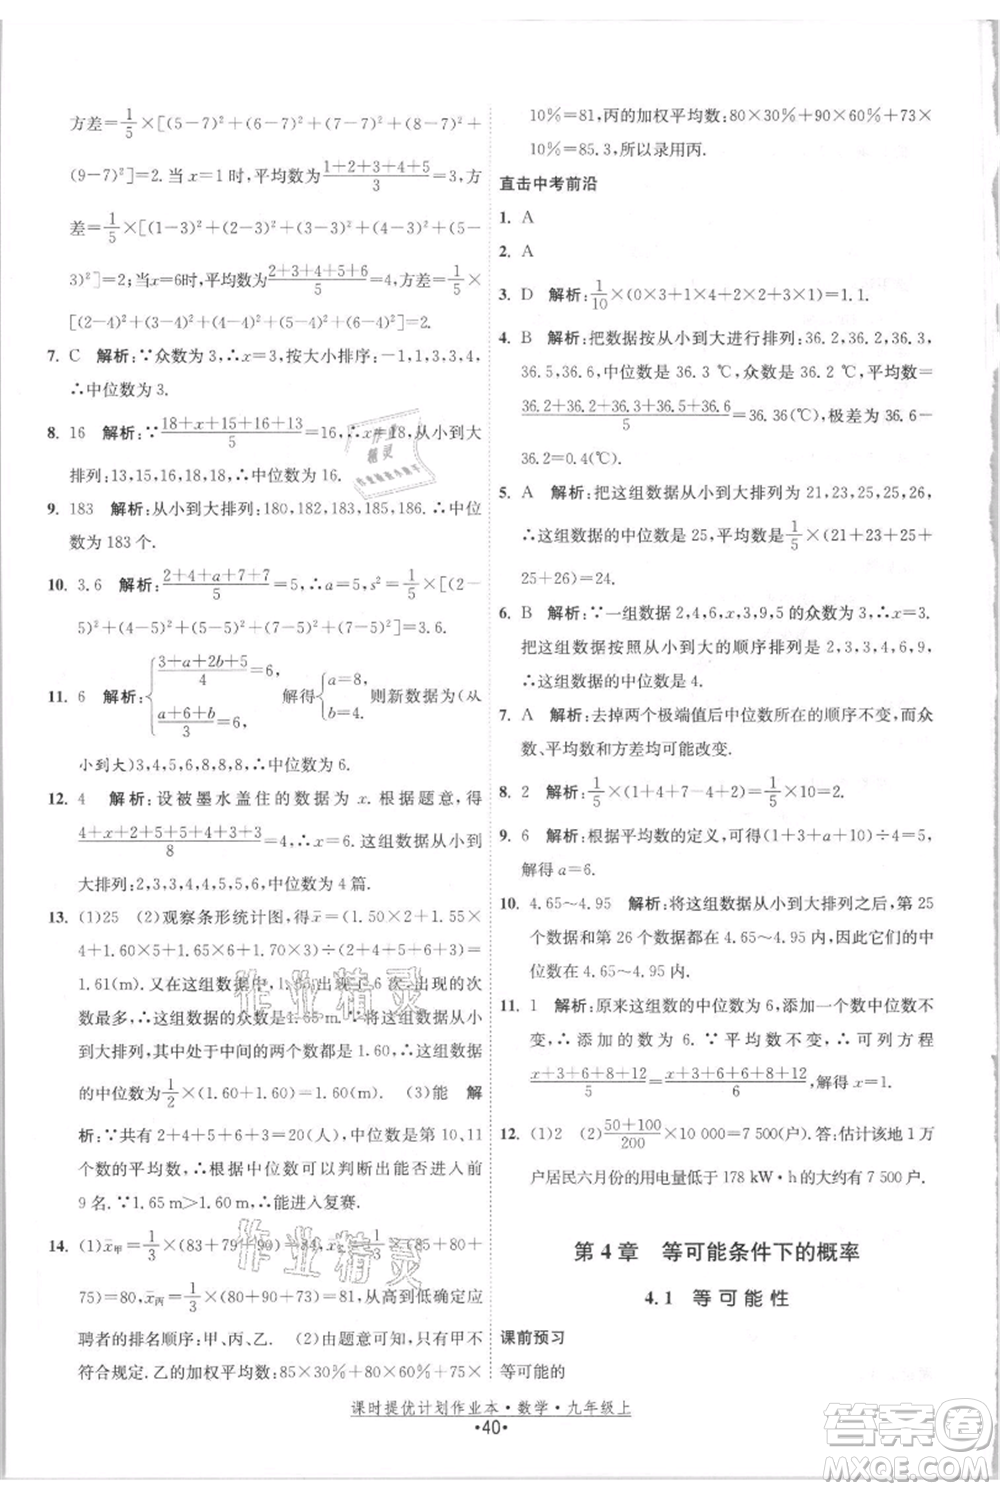 方差=1/5×[(5-7)²+(6-7)²+(7-7)²+(8-7)²+
(9-7)²]=2.当 x=1时,平均数为(1+2+3+4+5)/3=3,方
差=1/5×[(1-3)²+(2-3)²+(3-3)²+(4-3)²+(5-
3)²]=2;当 x=6时,平均数为(2+3+4+5+6)/5=4,方差=1/5×
[(2-4)²+(3-4)²+(4-4)²+(5-4)²+(6-4)²]=2.
7. C 解析:∵众数为 3,∴x=3,按大小排序:-1,1,3,3,4,
∴中位数为 3.
8. 16 解析:∵(18+x+15+16+13)/5=16,∴x=18,从小到大
排列:13,15,16,18,18,∴中位数为 16.
9. 183 解析:从小到大排列:180,182,183,185,186.∴中位
数为 183 个.
10. 3.6 解析:(2+4+a+7+7)/5=5,∴a=5,s²=1/5×[(2-
5)²+(4-5)²+(5-5)²+(7-5)²+(7-5)²]=3.6.
11. 6 解析:{(3+a+2b+5)/4=6,(a+6+b)/3=6, 解得{a=8,b=4, 则新数据为(从
小到大)3,4,5,6,8,8,8,∴中位数为 6.
12. 4 解析:设被墨水盖住的数据为 x.根据题意,得
(4+x+2+5+5+4+3+3)/8=4,∴x=6.这组数据从小到
大排列:2,3,3,4,4,5,5,6,中位数为 4 篇.
13. (1)25 (2)观察条形统计图,得x̄=(1.50×2+1.55×
4+1.60×5+1.65×6+1.70×3)÷(2+4+5+6+3)=
1.61(m).又∵在这组数据中,1.65出现了6次,出现的次
数最多,∴这组数据的众数为1.65 m.∵将这组数据从小
到大排列,其中处于中间的两个数都是 1.60,∴这组数据
的中位数为1/2×(1.60+1.60)=1.60(m) (3)能 解
析:∵共有 2+4+5+6+3=20(人),中位数是第 10、11
个数的平均数,∴根据中位数可以判断出能否进入前
9 名.∵1.65 m>1.60 m,∴能进入复赛.
14. (1)x̄甲=1/3×(83+79+90)=84,x̄乙=1/3×(85+80+
75)=80,x̄丙=1/3×(80+90+73)=81,∴从高到低确定应
聘者的排名顺序:甲、丙、乙. (2)由题意可知,只有甲不
符合规定.乙的加权平均数:85×30%+80×60%+75×
10%=81,丙的加权平均数:80×30%+90×60%+73×
10%=85.3,所以录用丙.
直击中考前沿
1. A
2. A
3. D 解析:1/10×(0×3+1×4+2×2+3×1)=1.1.
4. A 解析:把数据按从小到大进行排列:36.2,36.3,
36.5,36.6,中位数是 36.3 ℃,众数是 36.2 ℃,平均数是
(36.2+36.2+36.3+36.5+36.6)/5=36.36(℃),极差为 36.6-
36.2=0.4(℃).
5. A 解析:把这组数据从小到大排列为 21,23,25,25,26,
∴这组数据的中位数是 25,平均数是1/5×(21+23+25+
25+26)=24.
6. B 解析:∵一组数据 2,4,6,x,3,9,5 的众数是 3,∴x=3.
把这组数据按照从小到大的顺序排列是 2,3,3,4,5,6,9,
∴这组数据的中位数是 4.
7. A 解析:去掉两个极端值后中位数所在的顺序不变,而众
数、平均数和方差均可能改变.
8. 2 解析:1/5×(4+1+7-4+2)=1/5×10=2.
9. 6 解析:根据平均数的定义,可得(1+3+a+10)÷4=5,
解得 a=6.
10. 4.65～4.95 解析:将这组数据从小到大排列之后,第 25
个数据和第 26 个数据在 4.65～4.95 内,所以它们的中
位数也在 4.65～4.95 内.
11. 1 解析:原来这组数的中位数为 6,添加一个数中位数不
变,∴添加的数为 6.∵平均数不变,∴可列方程
(x+3+6+8+12)/5=(x+3+6+6+8+12)/6,∴x=1.
12. (1)2 (2)(50+100)/200×10 000=7 500(户).答:估计该地 1 万
户居民六月份的用电量低于 178 kW·h的大约有 7 500户.
第 4 章 等可能条件下的概率
4.1 等可能性
课前预习
等可能的
课时提优计划作业本·数学·九年级上
·40·
作业精灵
作业精灵
作业精灵
答案圈
MXQE.COM